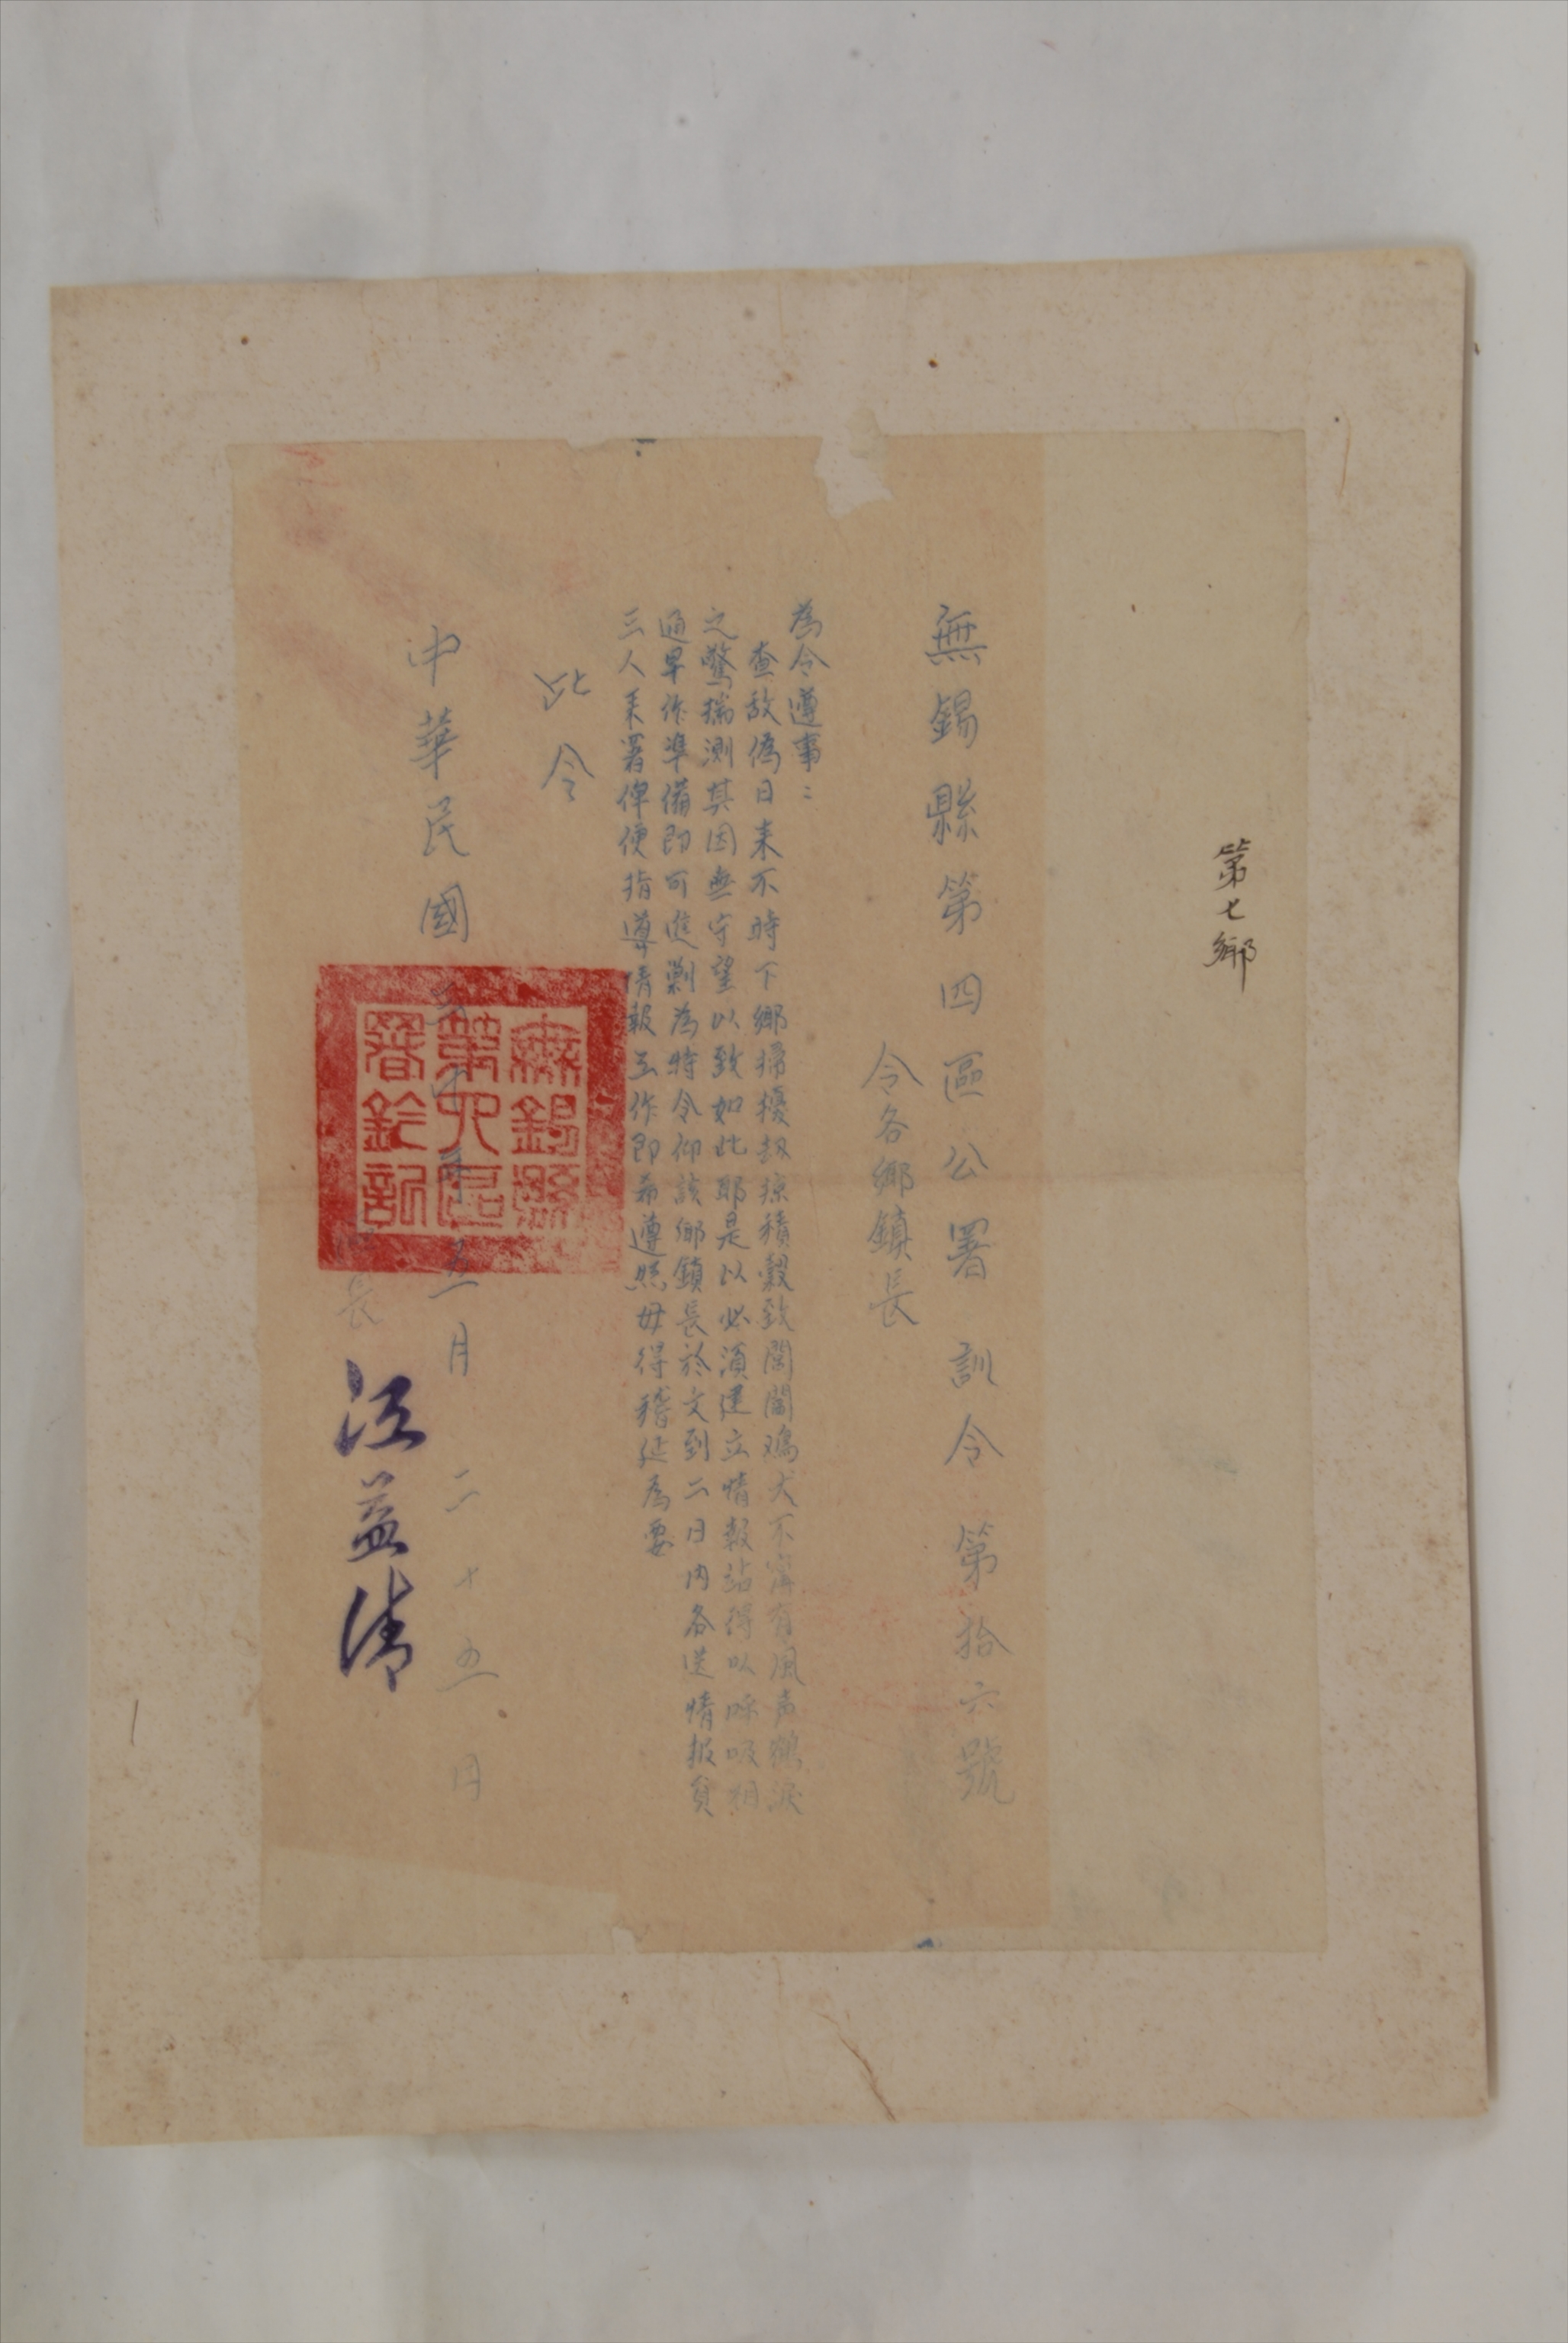 第七鄉
無錫縣第四區公署訓令 第拾六號
令各鄉鎮長
為令遵事：
查敌偽日来不時下鄉掃擾劫掠積穀致閭閻鸡犬不寕有風声鶴淚
之驚揣測其因無守望以致如此耶是以必須建立情報站得以呼吸相
通早作準備即可進剿為特令仰該鄉鎮長於文到二日内各送情报員
三人来署俾便指導情報工作即希遵照毋得稽延為要
此令
中華民國 年五月二十五日
長 江益清
無錫縣
第四區
署鈐記